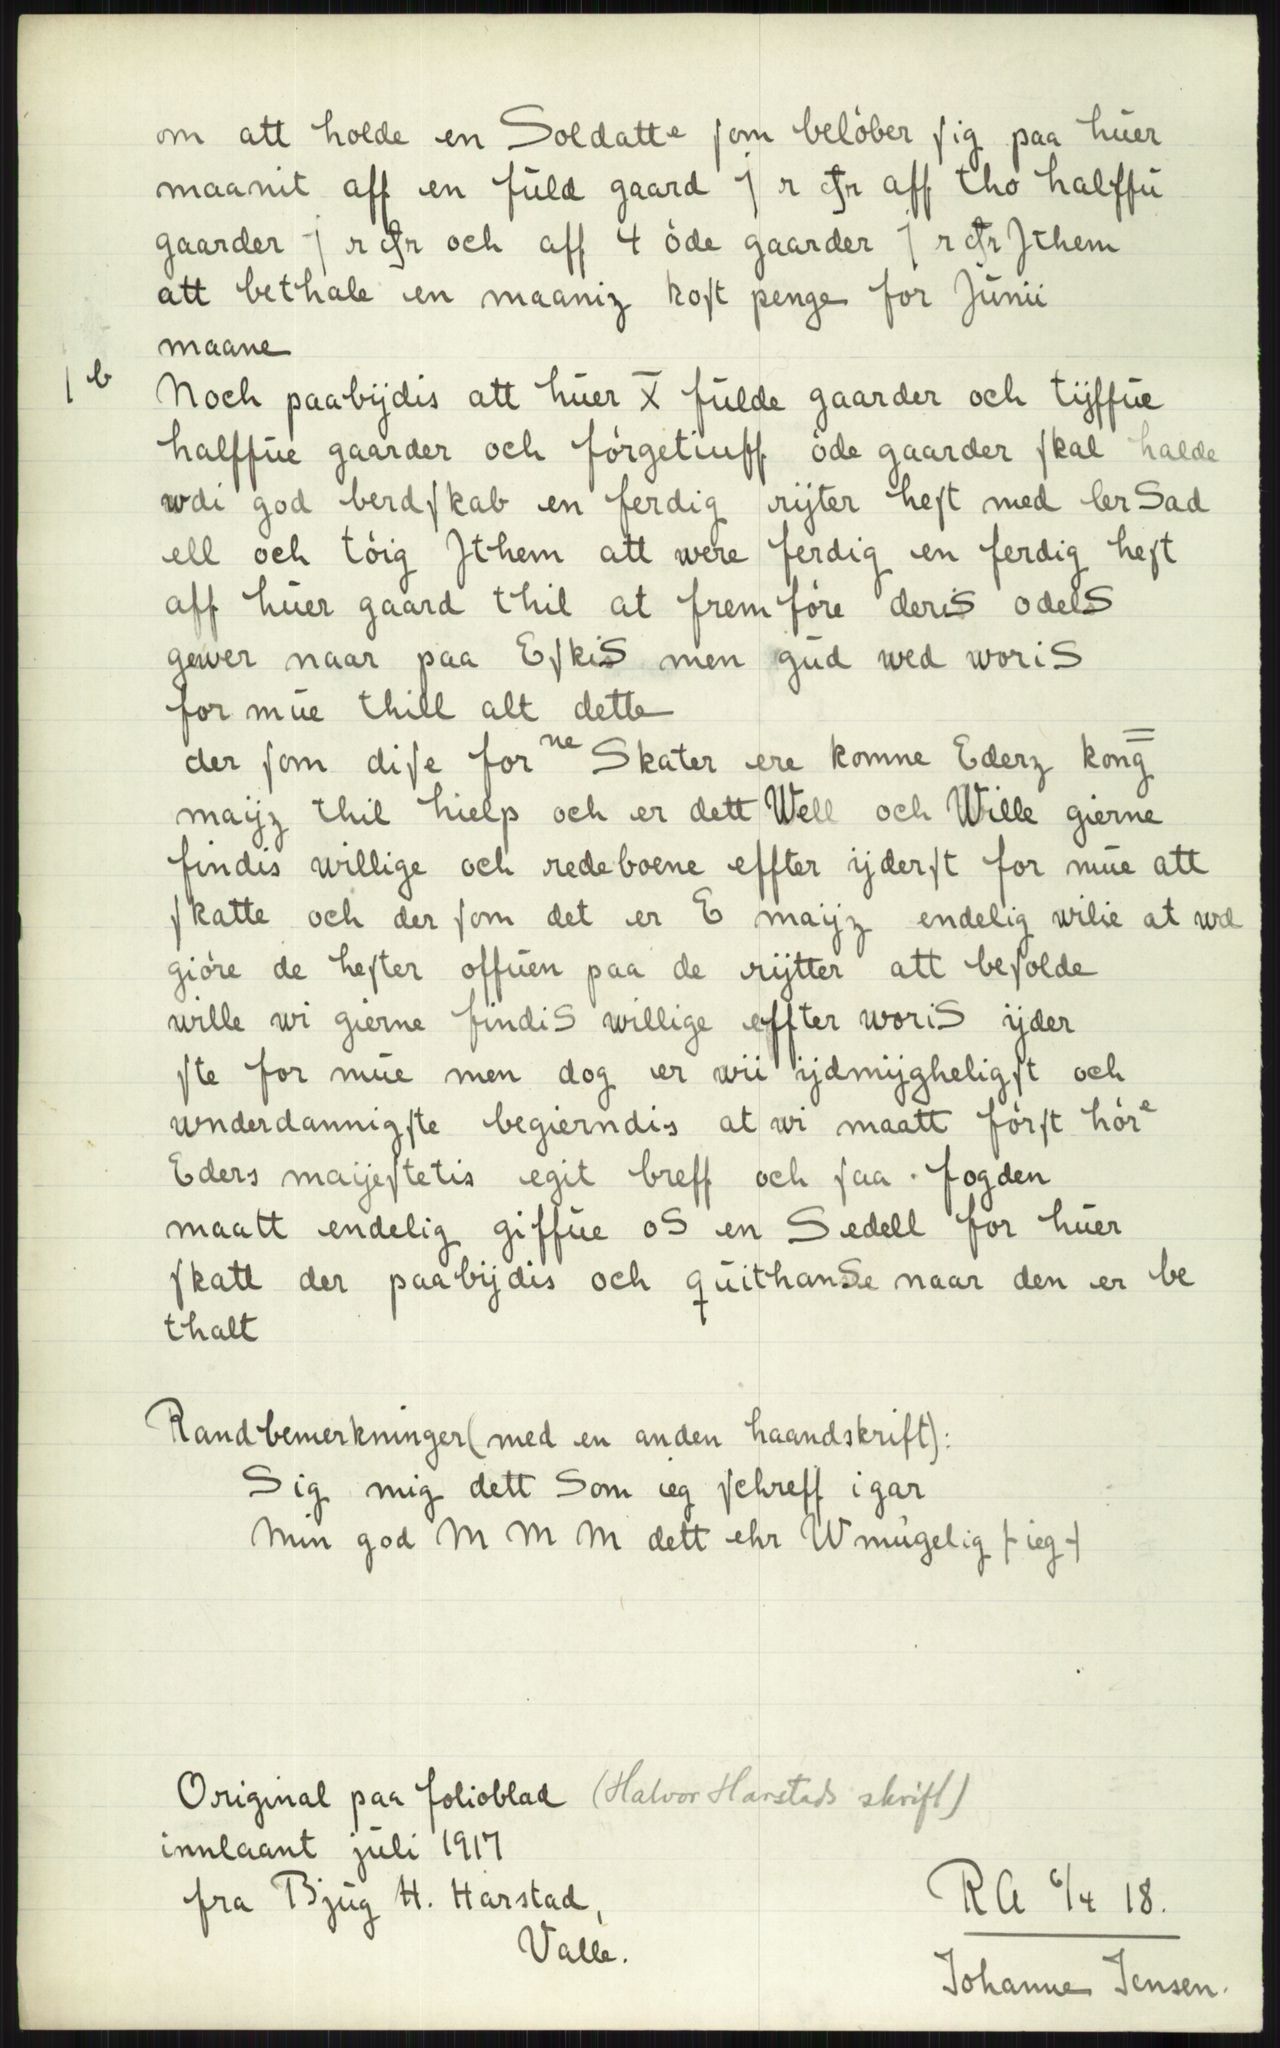 om att holde en Soldatte som belöber sig paa huer
maanit aff en fuld gaard j r dlr aff tho halffu
gaarder j r dlr och aff 4 öde gaarder j r dlr Jthem
att bethale en maaniz kost penge for Junii
maane
1 b Noch paabijdis att huer X fulde gaarder och tijffue
halffue gaarder och förgetiuff öde gaarder skal halde
wdi god berdskab en ferdig rijter hest med ler Sad
ell och töig Jthem att were ferdig en ferdig hest
aff huer gaard thil at fremföre deris odels
gewer naar paa Eskis men gud wed woris
for mue thill alt dette
der som dise for ne Skater ere komne Ederz kong
maijz thil hielp och er dett Well och Wille gierne
findis willige och redeboene effter ijderst for mue att
skatte och der som det er E maijz endelig wilie at wd
giöre de hester offuen paa de rijtter att besolde
wille wi gierne findis willige effter woris ijder
ste for mue men dog er wii ijdmijgheligst och
wnderdannigste begierndis at wi maatt först höre
Eders maijestetis egit breff och saa . fogden
maatt endelig giffue os en Sedell for huer
skatt der paabijdis och quithanse naar den er be
thalt
Randbemerkninger (med en anden haandskrift):
Sig mig dett Som ieg schreff igar
Min god M M M dett ehr Wmugelig [- ieg -]
Original paa folioblad (Halvor Harstads skrift)
innlaant juli 1917
fra Bjug H. Harstad,
Valle.
RA 6/4 18.
Johanne Jensen.